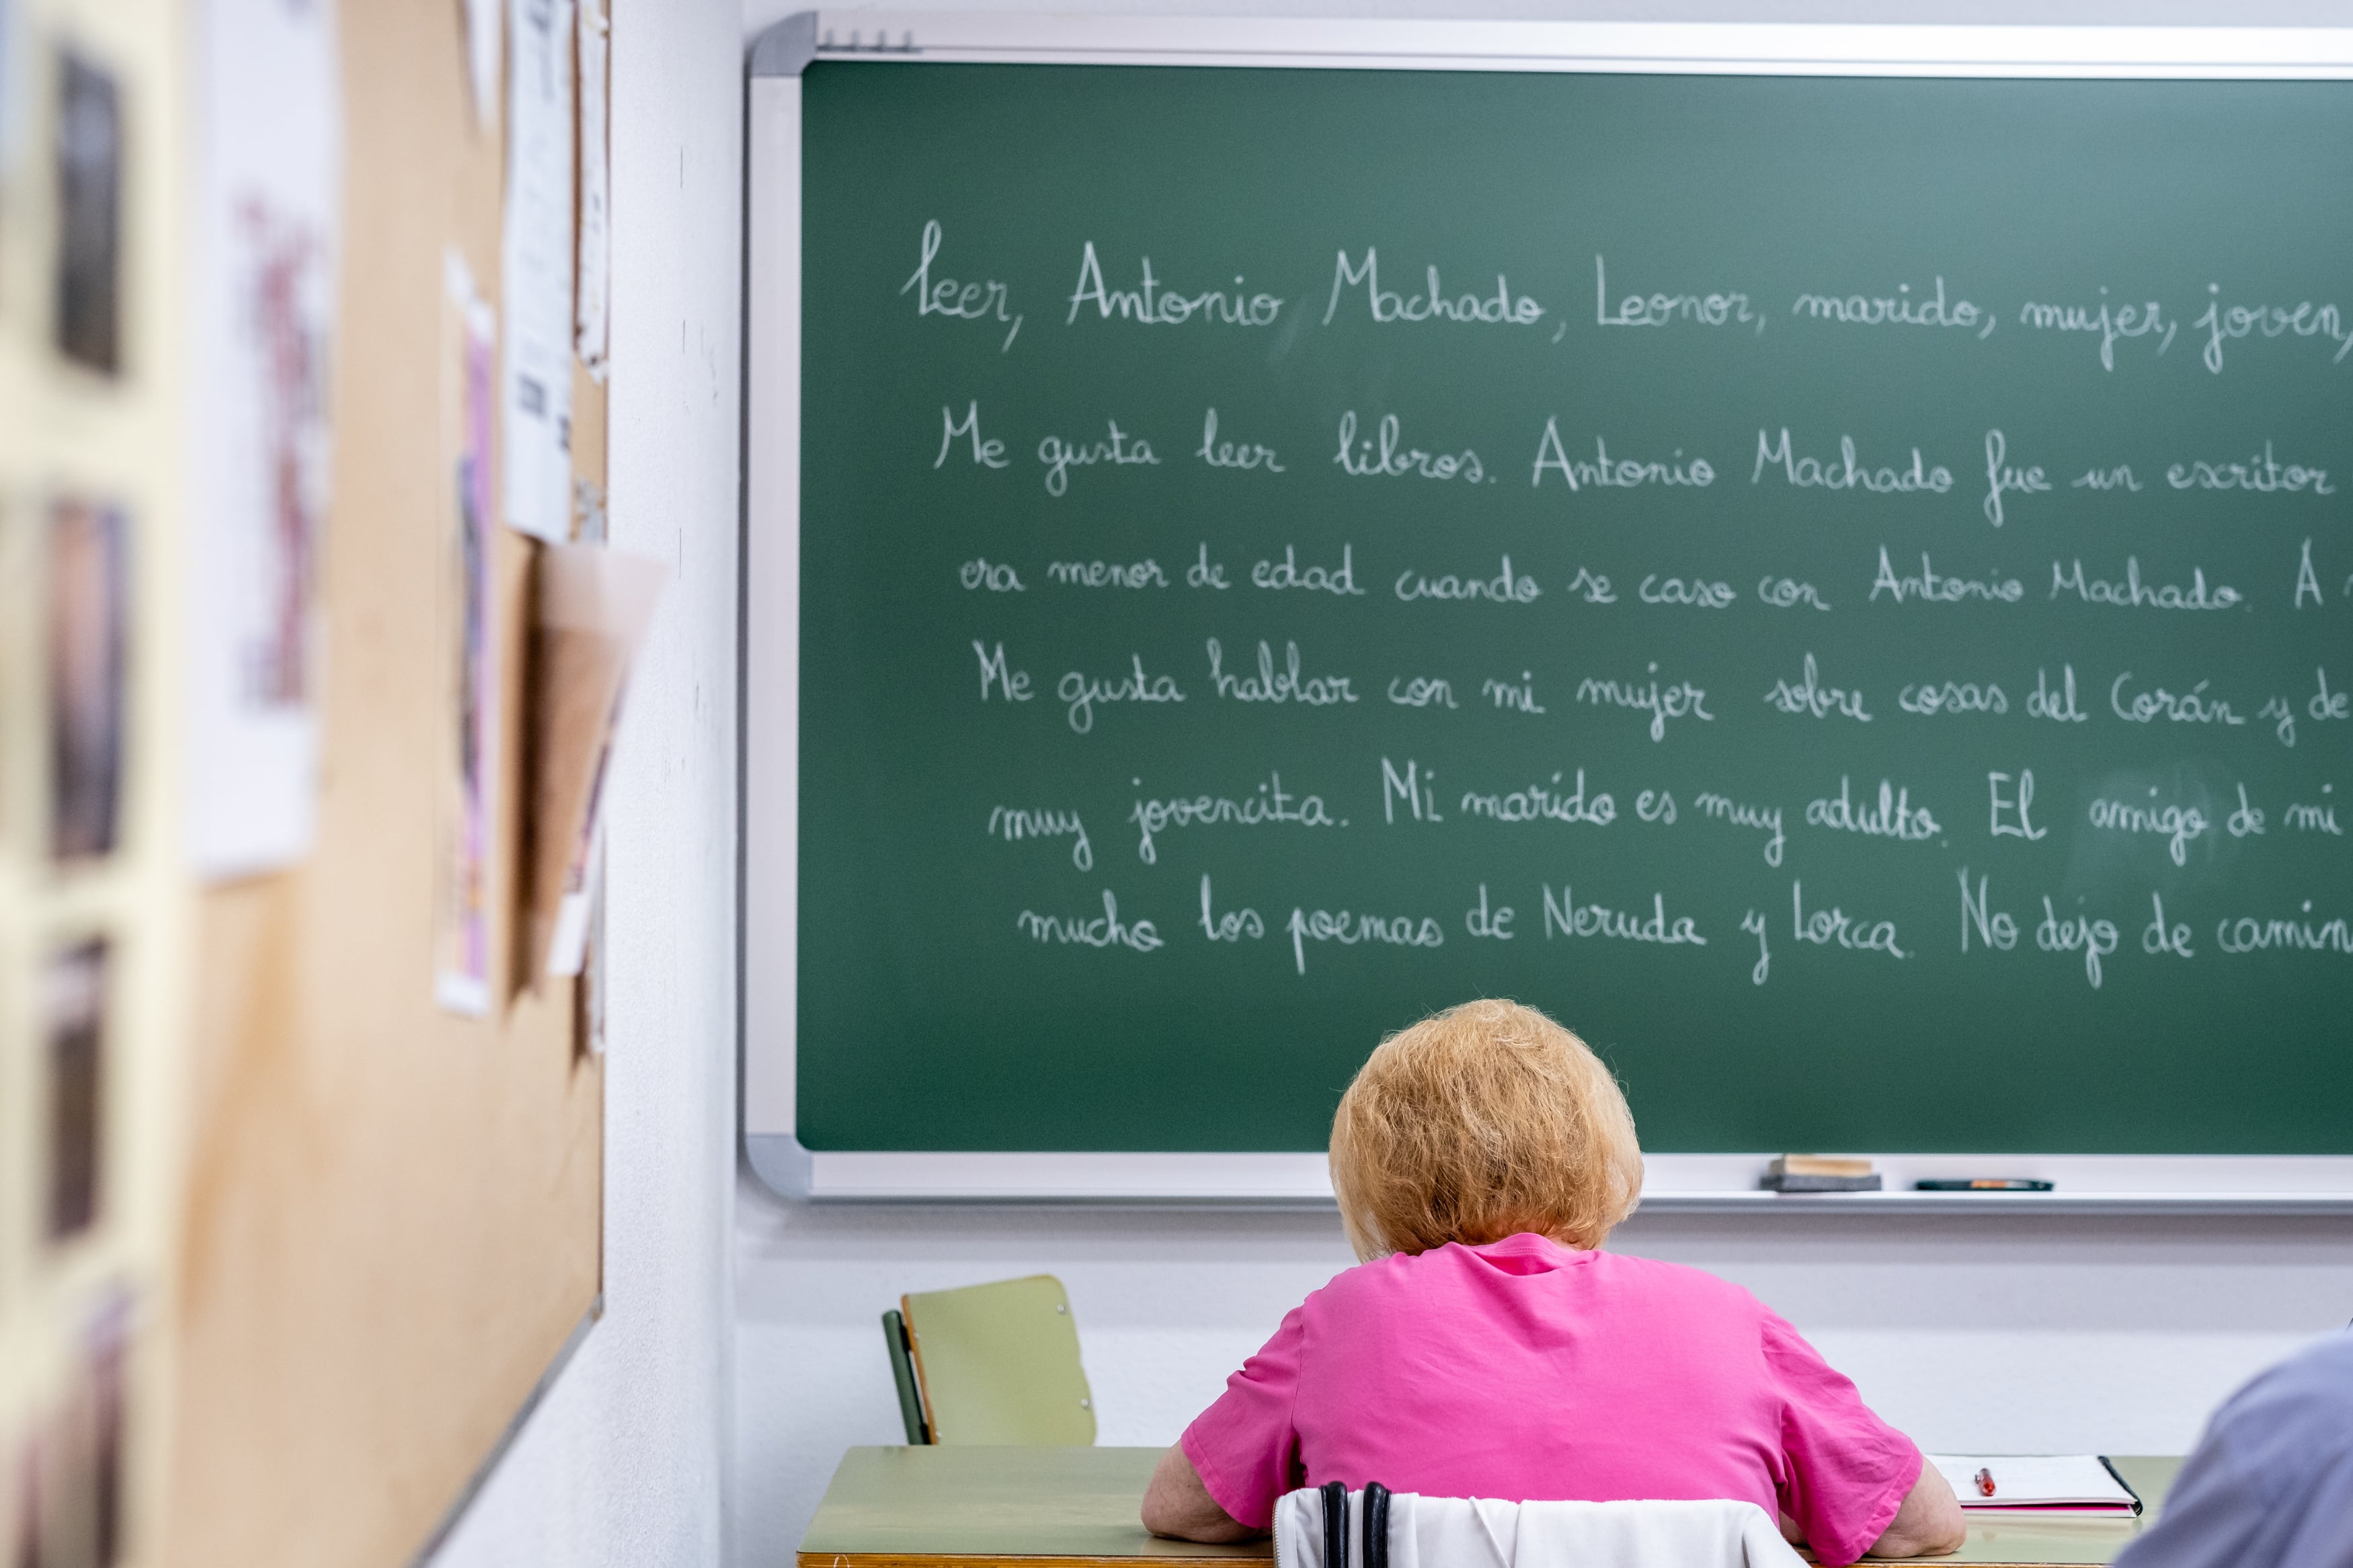 leer, Antonio Machado, Leonor, marido, mujer, joven,
Me gusta leer libros. Antonio Machado fue un escritor
era menor de edad cuando se caso con Antonio Machado. A
Me gusta hablar con mi mujer sobre cosas del Corán y de
muy jovencita. Mi marido es muy adulto. El amigo de mi
mucho los poemas de Neruda y Lorca. No dejo de camin